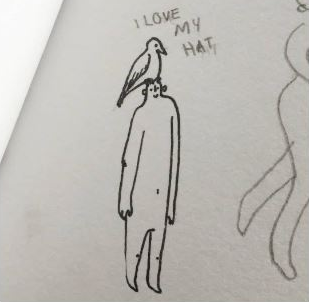 I LOVE
MY
HAT